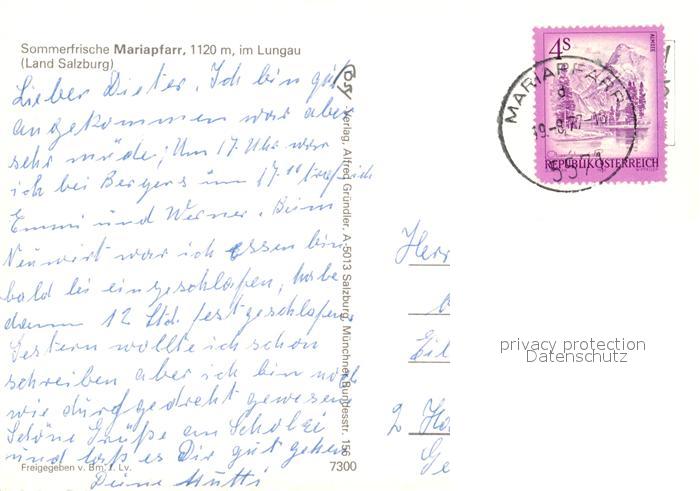 Sommerfrische Mariapfarr, 1120 m, im Lungau
(Land Salzburg)
Lieber Dieter. Ich bin gut
angekommen war aber
sehr müde; Um 17 Uhr war
ich bei Bergers um 17.10 traf ich
Emmi und Werner. Beim
Neuwirt war ich essen bin
bald eingeschlafen, habe
dann 12 Std. fest geschlafen.
Gestern wollte ich schon
schreiben aber ich bin noch
wie durchgedreht gewesen
Schöne Grüße an
und laß es Dir gut gehen
Deine Mutti
Freigegeben v. Bm. f. Lv.
7300
Cosy - Verlag, Alfred Gründler, A-5013 Salzburg, Münchner Bundesstr. 156
4S
ALMSEE
REPUBLIK ÖSTERREICH
MARIAPFARR
19.-8.77-18
5571
Herr
2 Ha
privacy protection
Datenschutz